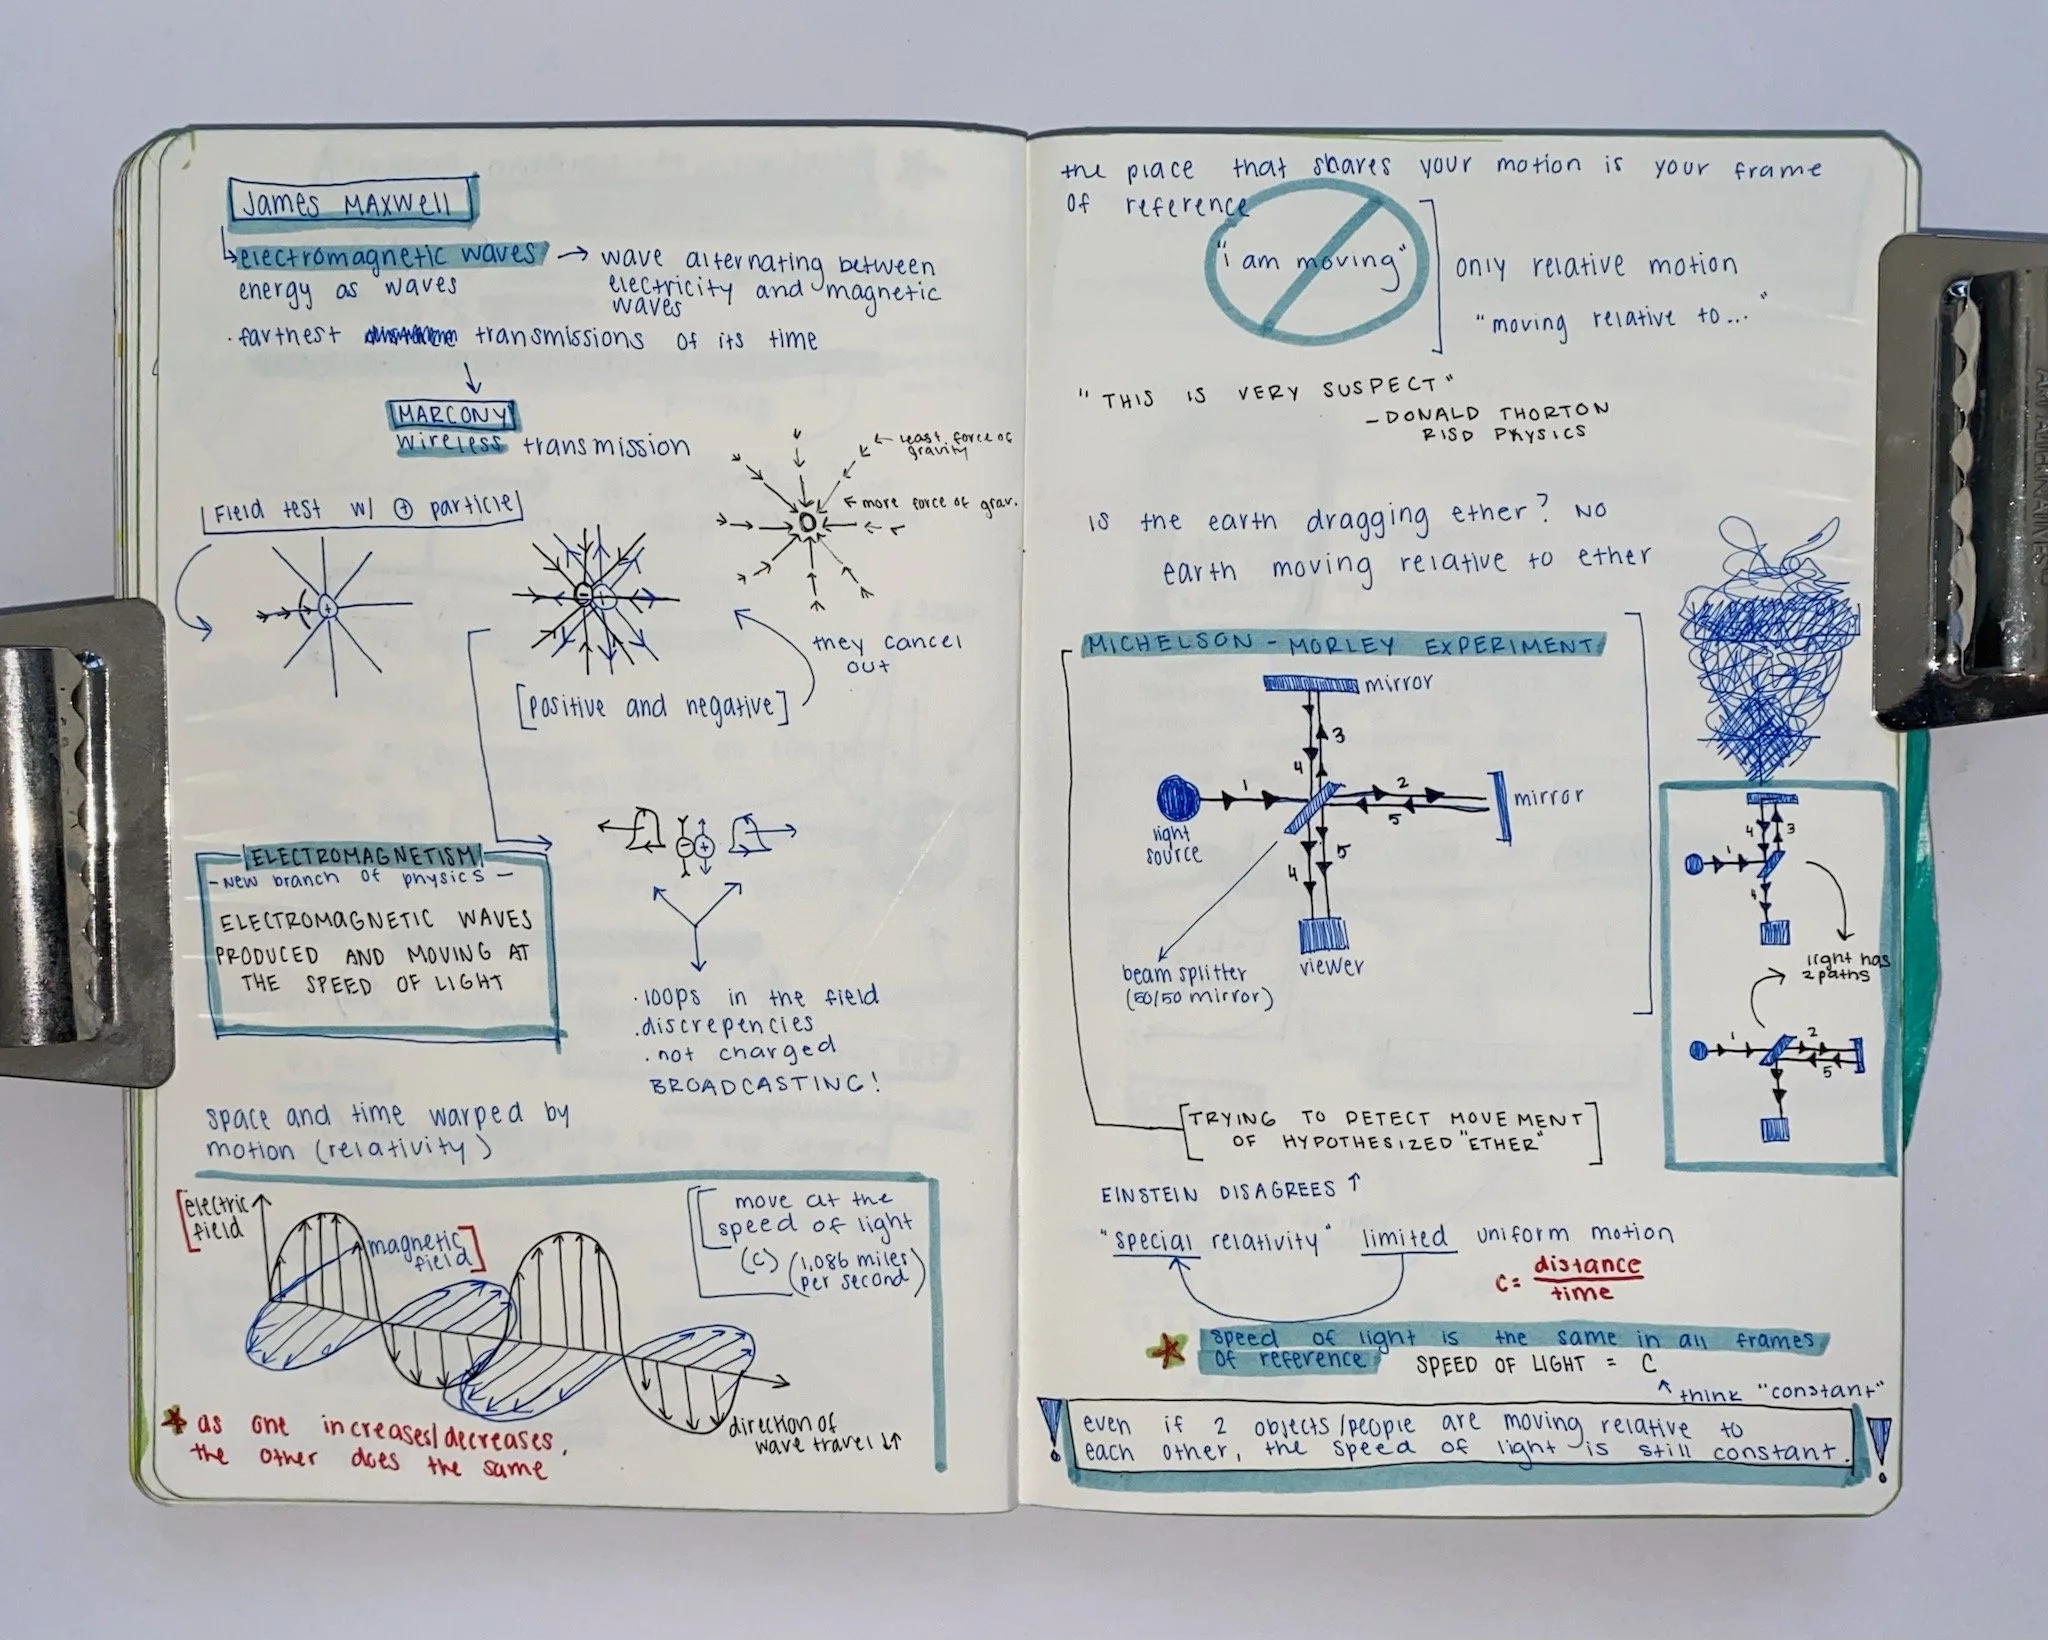 James MAXWell
electromagnetic waves → wave alternating between
energy as waves
electricity and magnetic
waves
· farthest transmissions of its time
MARCONY
wireless transmission
Field test w/ + particle
← least force of
gravity
← more force of grav.
they cancel
out
[positive and negative]
ELECTROMAGNETISM
- New branch of physics -
ELECTROMAGNETIC WAVES
PRODUCED AND MOVING AT
THE SPEED OF LIGHT
- +
· loops in the field
· discrepencies
· not charged
BROADCASTING!
space and time warped by
motion (relativity)
[electric
field
magnetic
field]
move at the
speed of light
(c) (1,086 miles
per second)
direction of
wave travel ↓↑
★ as one increases/decreases,
the other does the same
the place that shares your motion is your frame
of reference
"i am moving"
only relative motion
"moving relative to..."
"THIS IS VERY SUSPECT"
- DONALD THORTON
RISD PHYSICS
is the earth dragging ether? NO
earth moving relative to ether
MICHELSON - MORLEY EXPERIMENT
mirror
3
4
1
2
5
mirror
light
source
4
5
beam splitter
(50/50 mirror)
viewer
4
3
1
4
light has
2 paths
1
2
5
[TRYING TO DETECT MOVEMENT
OF HYPOTHESIZED "ETHER"]
EINSTEIN DISAGREES ↑
"special relativity" limited uniform motion
c = distance
time
★ speed of light is the same in all frames
of reference SPEED OF LIGHT = C
↖ think "constant"
! even if 2 objects/people are moving relative to !
each other, the speed of light is still constant.